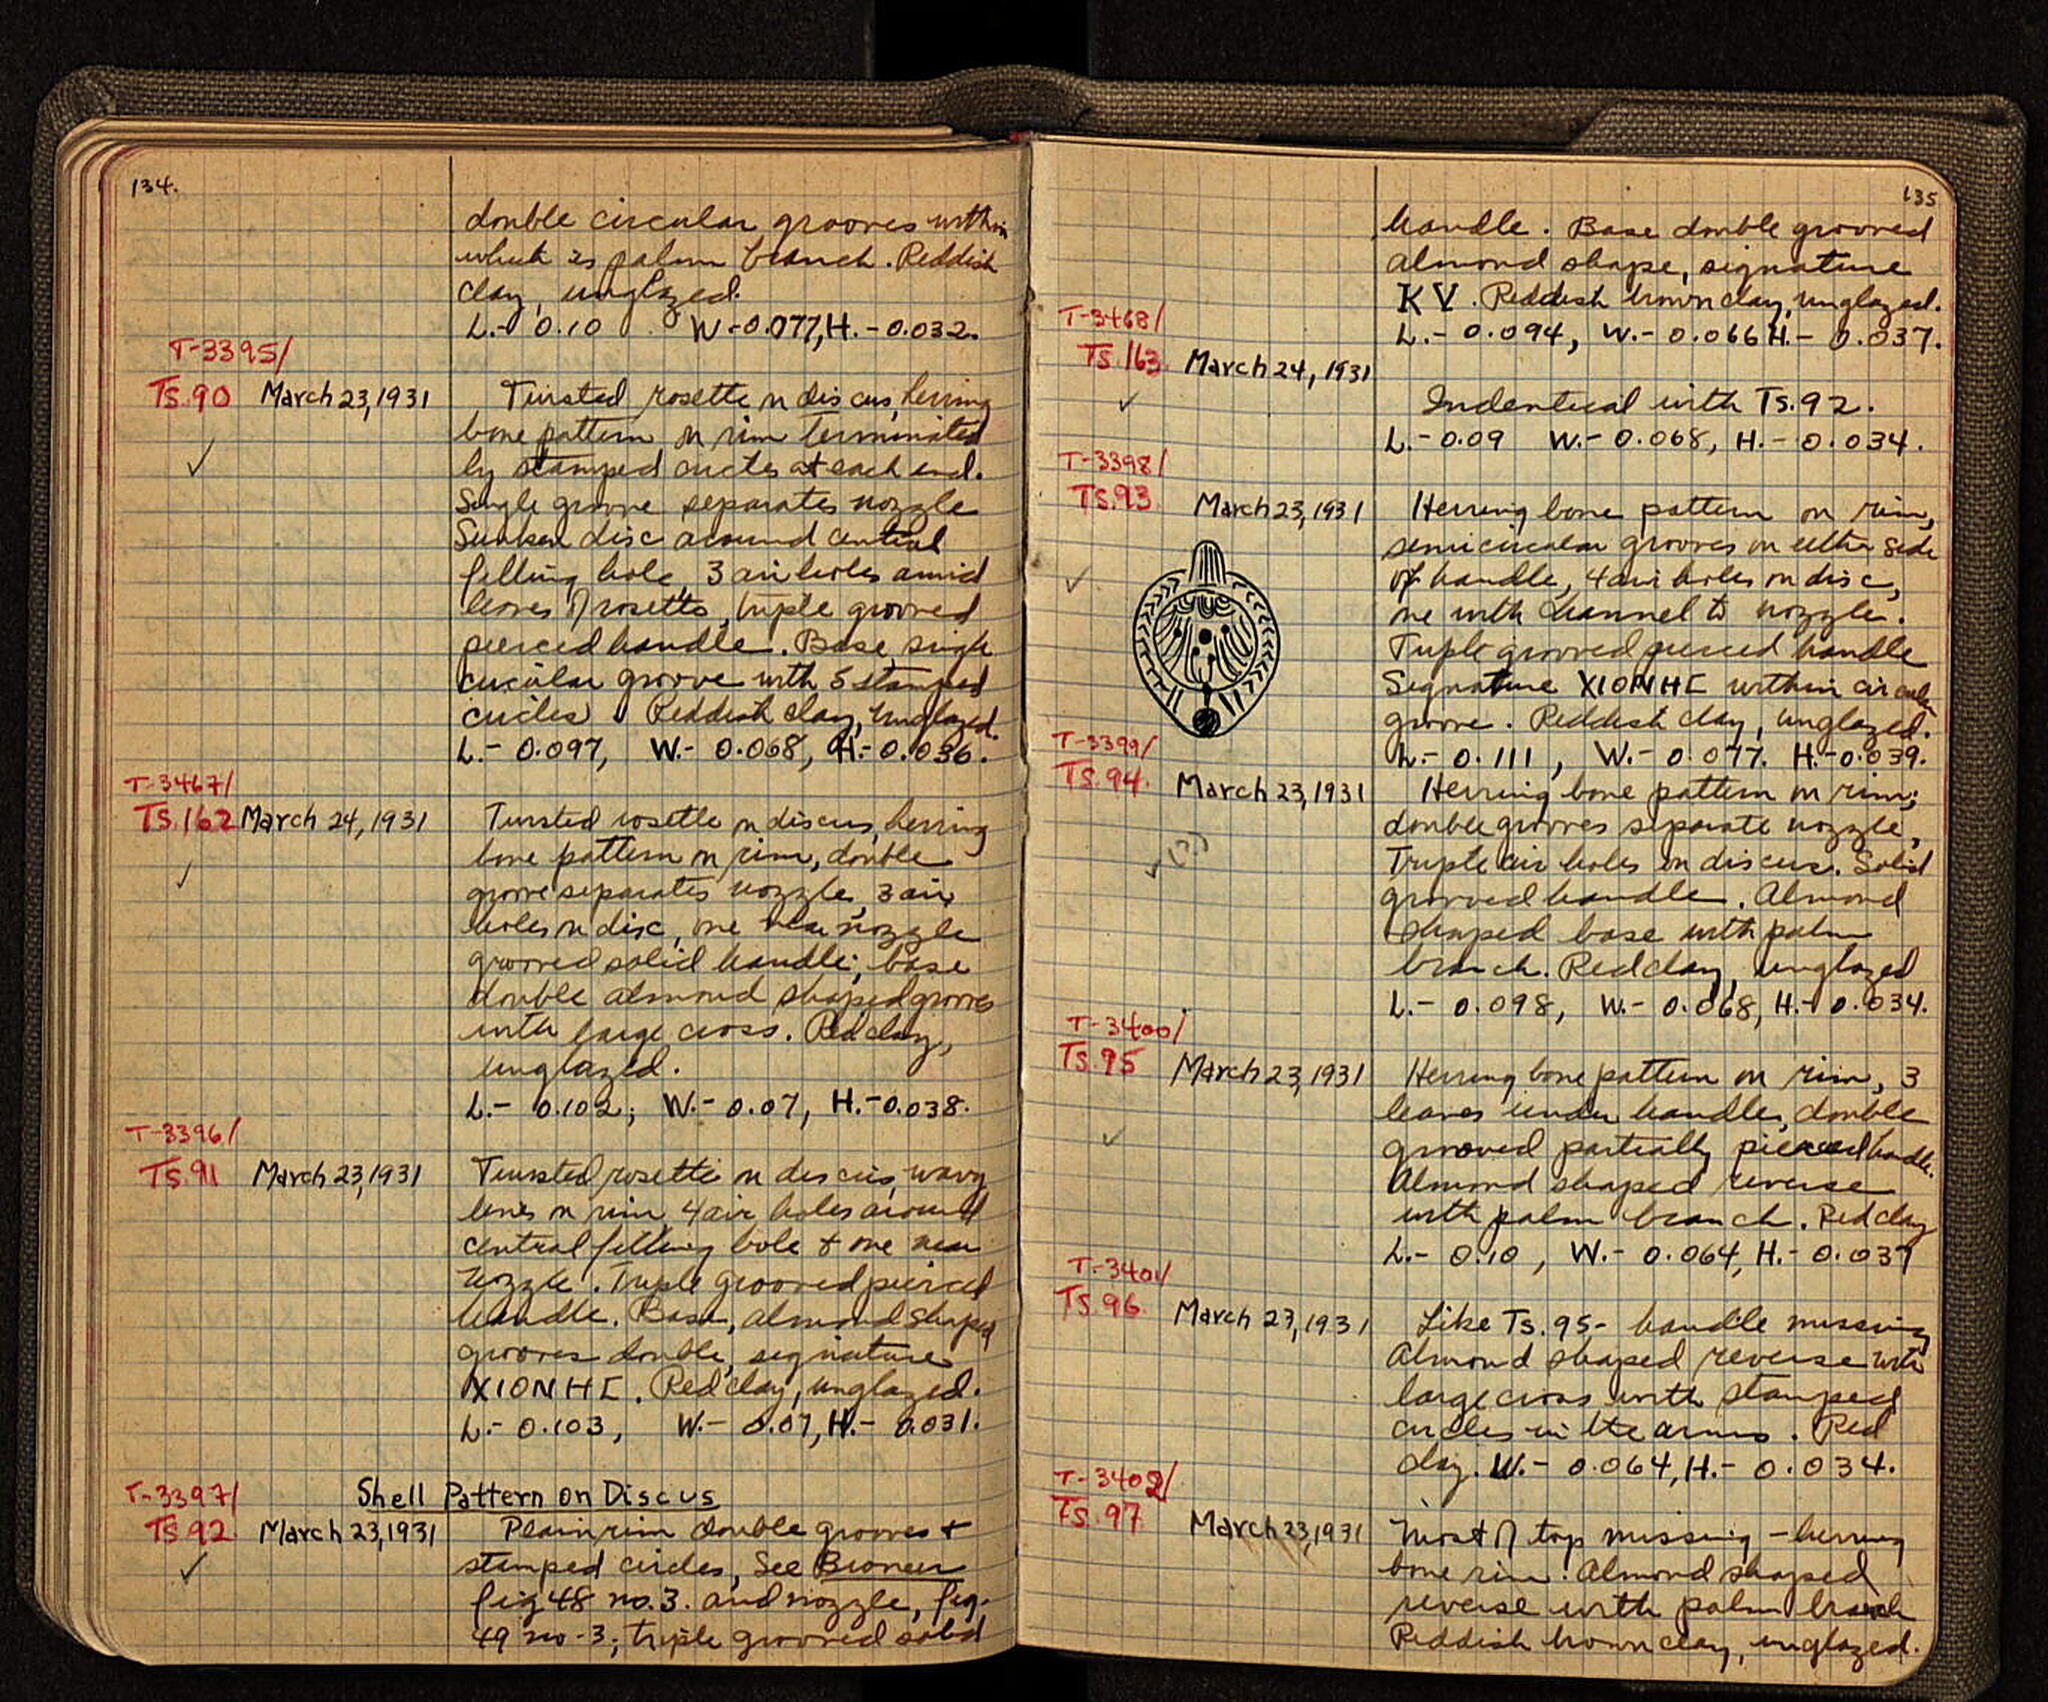 134.
double circular grooves within
which is palm branch. Reddish
clay, unglazed.
L.- 0.10 W.-0.077, H.-0.032.
T-3395/
Ts.90 March 23, 1931 Twisted rosette on discus, herring
bone pattern on rim terminated
by stamped circles at each end.
Single groove separates nozzle
Sunken disc around central
filling hole, 3 air holes amid
leaves of rosette, triple grooved
pierced handle. Base, single
circular groove with 5 stamped
circles. Reddish clay, unglazed.
L.- 0.097, W.- 0.068, H.-0.036.
T-3467/
Ts.162 March 24, 1931 Twisted rosette on discus, herring
bone pattern on rim, double
groove separates nozzle, 3 air
holes on disc, one near nozzle
grooved solid handle; base
double almond shaped grooves
with large cross. Red clay,
unglazed.
L.- 0.102; W.- 0.07, H.-0.038.
T-3396/
Ts.91 March 23, 1931 Twisted rosette on discus, wavy
lines on rim, 4 air holes around
central filling hole + one near
nozzle. Triple grooved pierced
handle. Base, almond shaped
grooves double, signature
XIONHC. Red clay, unglazed.
L.- 0.103, W.- 0.07, H.- 0.031.
T-3397/ Shell Pattern on Discus
Ts.92 March 23, 1931 Plain rim double grooves +
stamped circles, See Broneer
fig 48 no. 3. and nozzle, fig.
49 no-3; triple grooved solid
135
handle. Base double grooved
almond shape, signature
KV. Reddish brown clay, unglazed.
L.- 0.094, W.- 0.066 H.- 0.037.
T-3468/
Ts.163 March 24, 1931
Indentical with Ts.92.
L.-0.09 W.- 0.068, H.- 0.034.
T-3398/
Ts.93 March 23, 1931 Herring bone pattern on rim,
semicircular grooves on either side
of handle, 4 air holes on disc,
one with channel to nozzle.
Triple grooved pierced handle
Signature XIONHC within circular
groove. Reddish clay, unglazed.
L.- 0.111, W.- 0.077. H.-0.039.
T-3399/
Ts.94. March 23, 1931 Herring bone pattern on rim;
double grooves separate nozzle,
Triple air holes on discus. Solid
grooved handle. Almond
shaped base with palm
branch. Red clay, unglazed
L.- 0.098, W.- 0.068, H.- 0.034.
T-3400/
Ts.95 March 23, 1931 Herring bone pattern on rim, 3
leaves under handles, double
grooved partially pierced handle.
Almond shaped reverse
with palm branch. Red clay
L.- 0.10, W.- 0.064, H.- 0.037
T-3401/
Ts.96 March 23, 1931 Like Ts.95- handle missing
Almond shaped reverse with
large cross with stamped
circles in the arms. Red
clay. W.- 0.064, H.- 0.034.
T-3402/
Ts.97 March 23, 1931 Most of top missing - herring
bone rim. Almond shaped
reverse with palm branch
Reddish brown clay, unglazed.